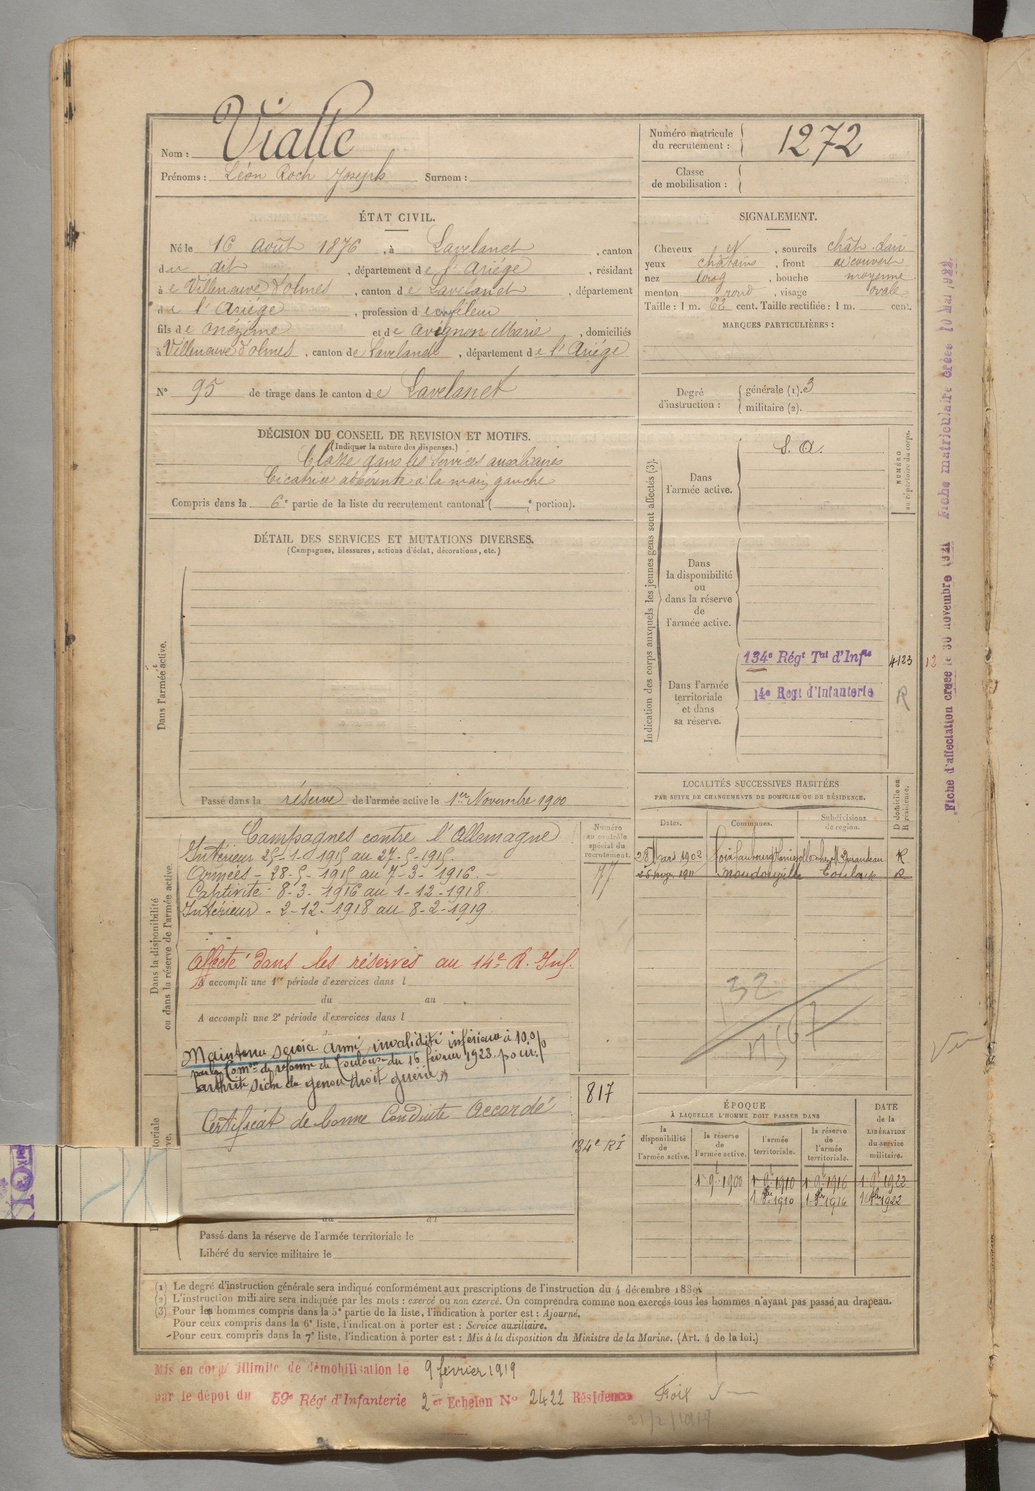 Nom : Vialle
Prénoms : Léon Roch Joseph Surnom :
Numéro matricule du recrutement : 1272
Classe de mobilisation :
ÉTAT CIVIL.
Né le 16 août 1876, à Lavelanet, canton
du dit, département de l'Ariége, résidant
à Villeneuve d'olmes, canton de Lavelanet, département
de l'Ariége, profession de
fils de Onézime et de Avignon Marie, domiciliés
à Villeneuve d'olmes, canton de Lavelanet, département de l'Ariége
N° 95 de tirage dans le canton de Lavelanet
SIGNALEMENT.
Cheveux N, sourcils chât.
yeux châtains, front découvert
nez long, bouche moyenne
menton rond, visage ovale
Taille : 1 m. 62 cent. Taille rectifiée : 1 m. cent.
MARQUES PARTICULIÈRES :
Degré d'instruction : générale (1). 3
militaire (2).
DÉCISION DU CONSEIL DE REVISION ET MOTIFS.
(Indiquer la nature des dispenses.)
Classé dans les services auxiliaires
Cicatrice adhérente à la main gauche
Compris dans la 6e partie de la liste du recrutement cantonal ( e portion).
DÉTAIL DES SERVICES ET MUTATIONS DIVERSES.
(Campagnes, blessures, actions d'éclat, décorations, etc.)
Dans l'armée active.
Passé dans la réserve de l'armée active le 1er Novembre 1900
Indication des corps auxquels les jeunes gens sont affectés (3).
Dans l'armée active. S. A.
NUMÉRO au répertoire du corps.
Dans la disponibilité ou dans la réserve de l'armée active.
Dans l'armée territoriale et dans sa réserve.
134e Régt Tal d'Infie 4123
14e Regt d'Infanterie R
Fiche d'affectation créée le 30 novembre 1921 Fiche matriculaire créée 10 Mai 1922
Dans la disponibilité ou dans la réserve de l'armée active
Campagnes contre l'Allemagne
Intérieur 25-1-1915 au 27-5-1915
Armées - 28-5-1915 au 7-3-1916
Captivité : 8-3-1916 au 1-12-1918
Intérieur - 2-12-1918 au 8-2-1919
Affecté dans les réserves au 14e R. Inf.
A accompli une 1re période d'exercices dans l
du au
A accompli une 2e période d'exercices dans l
Maintenu service armé, invalidité inférieure à 10 %
par la Comon de réforme de Toulouse du 16 février 1923 pour
arthrite sèche du genou droit
Certificat de bonne Conduite Accordé
Numéro au contrôle spécial du recrutement.
77
817
134e RI
Passé dans la réserve de l'armée territoriale le
Libéré du service militaire le
LOCALITÉS SUCCESSIVES HABITÉES
PAR SUITE DE CHANGEMENTS DE DOMICILE OU DE RÉSIDENCE.
Dates. Communes. Subdivisions de région. D domicile ou R résidence.
28 Mars 1902 R
1911 Mondonville Toulouse R
32
ÉPOQUE
À LAQUELLE L'HOMME DOIT PASSER DANS
la disponibilité de l'armée active. la réserve de l'armée active. l'armée territoriale. la réserve de l'armée territoriale.
DATE de la LIBÉRATION du service militaire.
1 9 1900 1910 1916 1922
1910 1916 1922
(1) Le degré d'instruction générale sera indiqué conformément aux prescriptions de l'instruction du 4 décembre 1889.
(2) L'instruction militaire sera indiquée par les mots : exercé ou non exercé. On comprendra comme non exercés tous les hommes n'ayant pas passé au drapeau.
(3) Pour les hommes compris dans la 5e partie de la liste, l'indication à porter est : Ajourné.
Pour ceux compris dans la 6e liste, l'indication à porter est : Service auxiliaire.
Pour ceux compris dans la 7e liste, l'indication à porter est : Mis à la disposition du Ministre de la Marine. (Art. 4 de la loi.)
Mis en congé illimité de démobilisation le 9 février 1919
par le dépôt du 59e Régt d'Infanterie 2e Echelon N° 2422 Résidence Foix